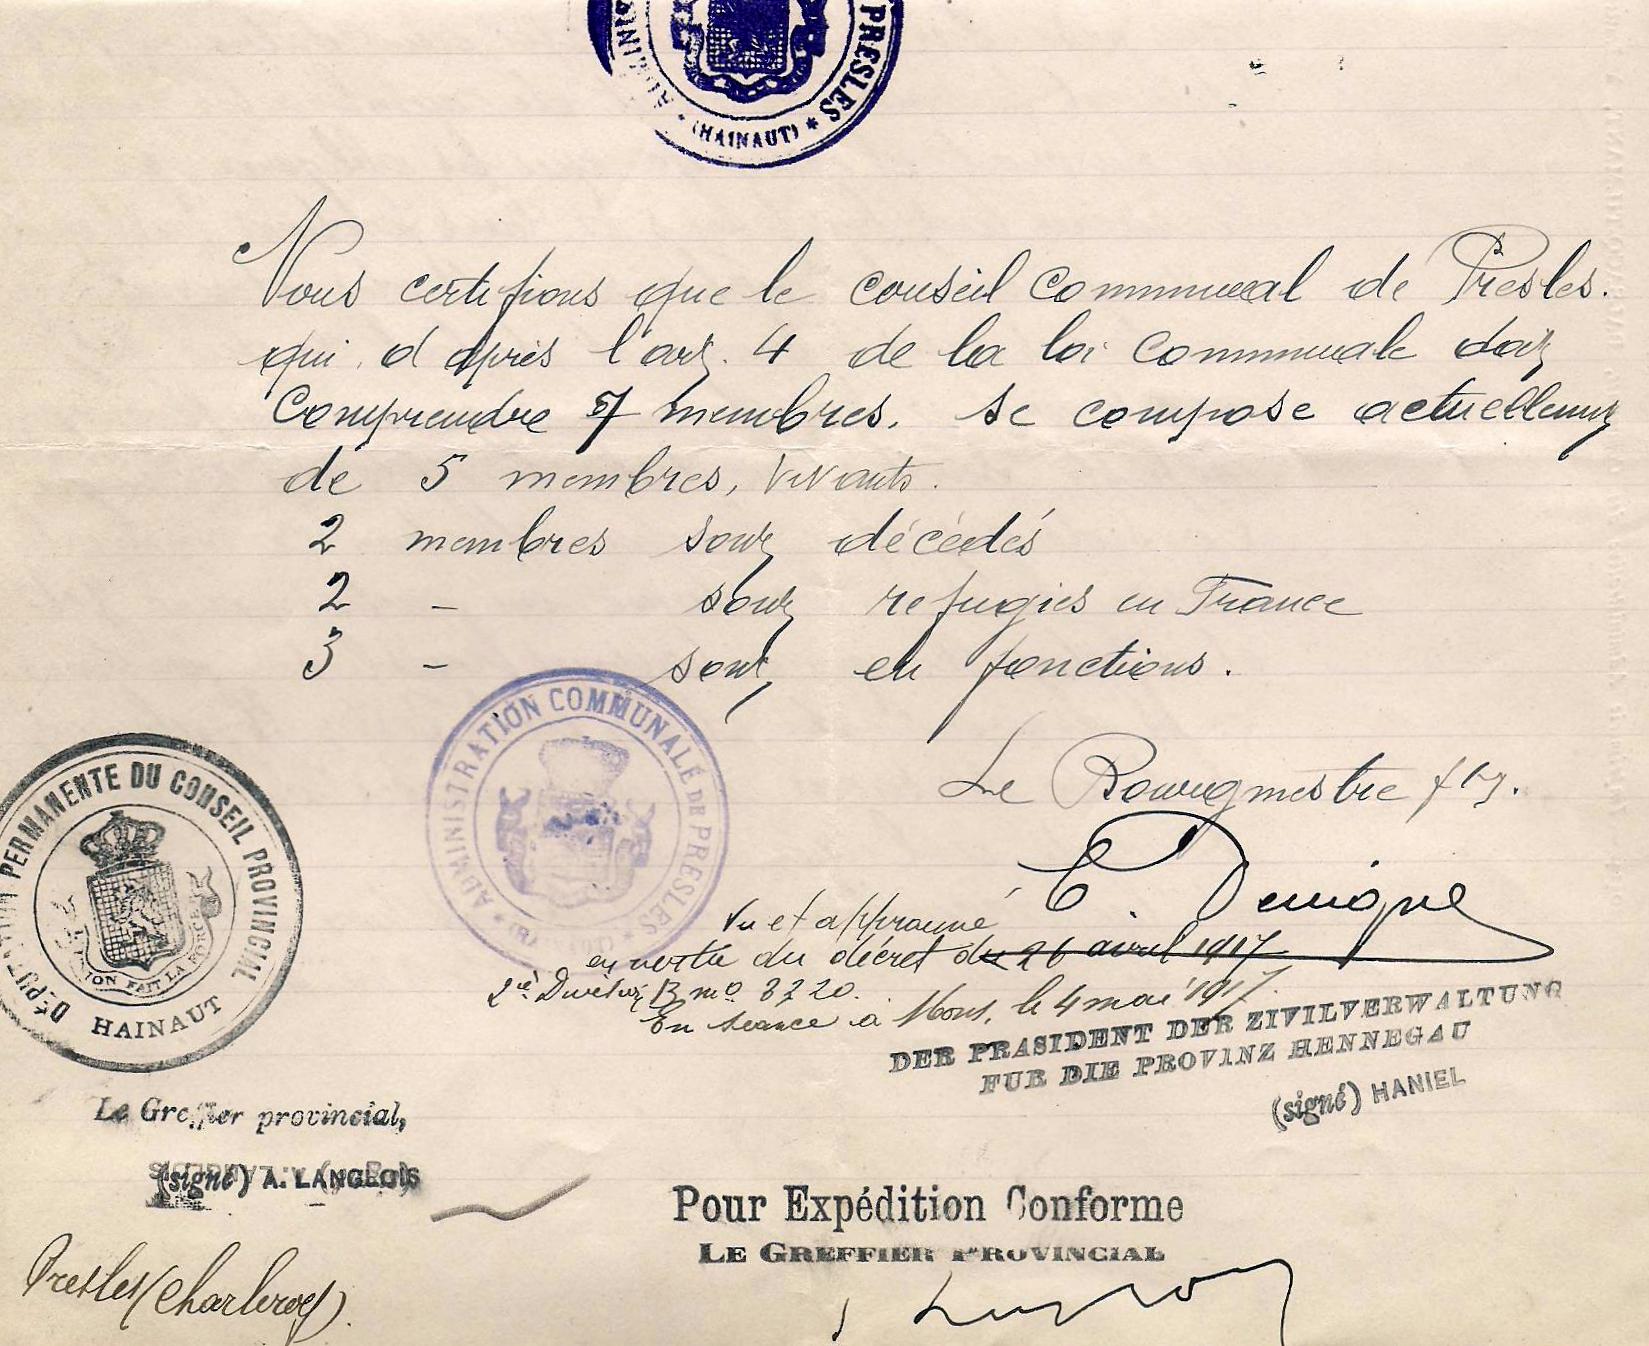 ADMINIS PRESLES * (HAINAUT) *
Nous certifions que le conseil communal de Presles.
qui, d'après l'art. 4 de la loi communale doit
comprendre 7 membres, se compose actuellement
de 5 membres, vivants.
2 membres sont décédés
2 - sont refugiés en France
3 - sont en fonctions.
Le Bourgmestre
ADMINISTRATION COMMUNALE DE PRESLES
DÉPUTATION PERMANENTE DU CONSEIL PROVINCIAL
L'UNION FAIT LA FORCE
HAINAUT
Vu et approuvé
en vertu du décret du 26 avril 1917
2è Division B no 3220.
En séance à Mons, le 4 mai 1917.
DER PRASIDENT DER ZIVILVERWALTUNG
FUR DIE PROVINZ HENNEGAU
(signé) HANIEL
Le Greffier provincial,
(signé) A. LANGLOIS
Pour Expédition Conforme
LE GREFFIER PROVINCIAL
Presles (Charleroi).